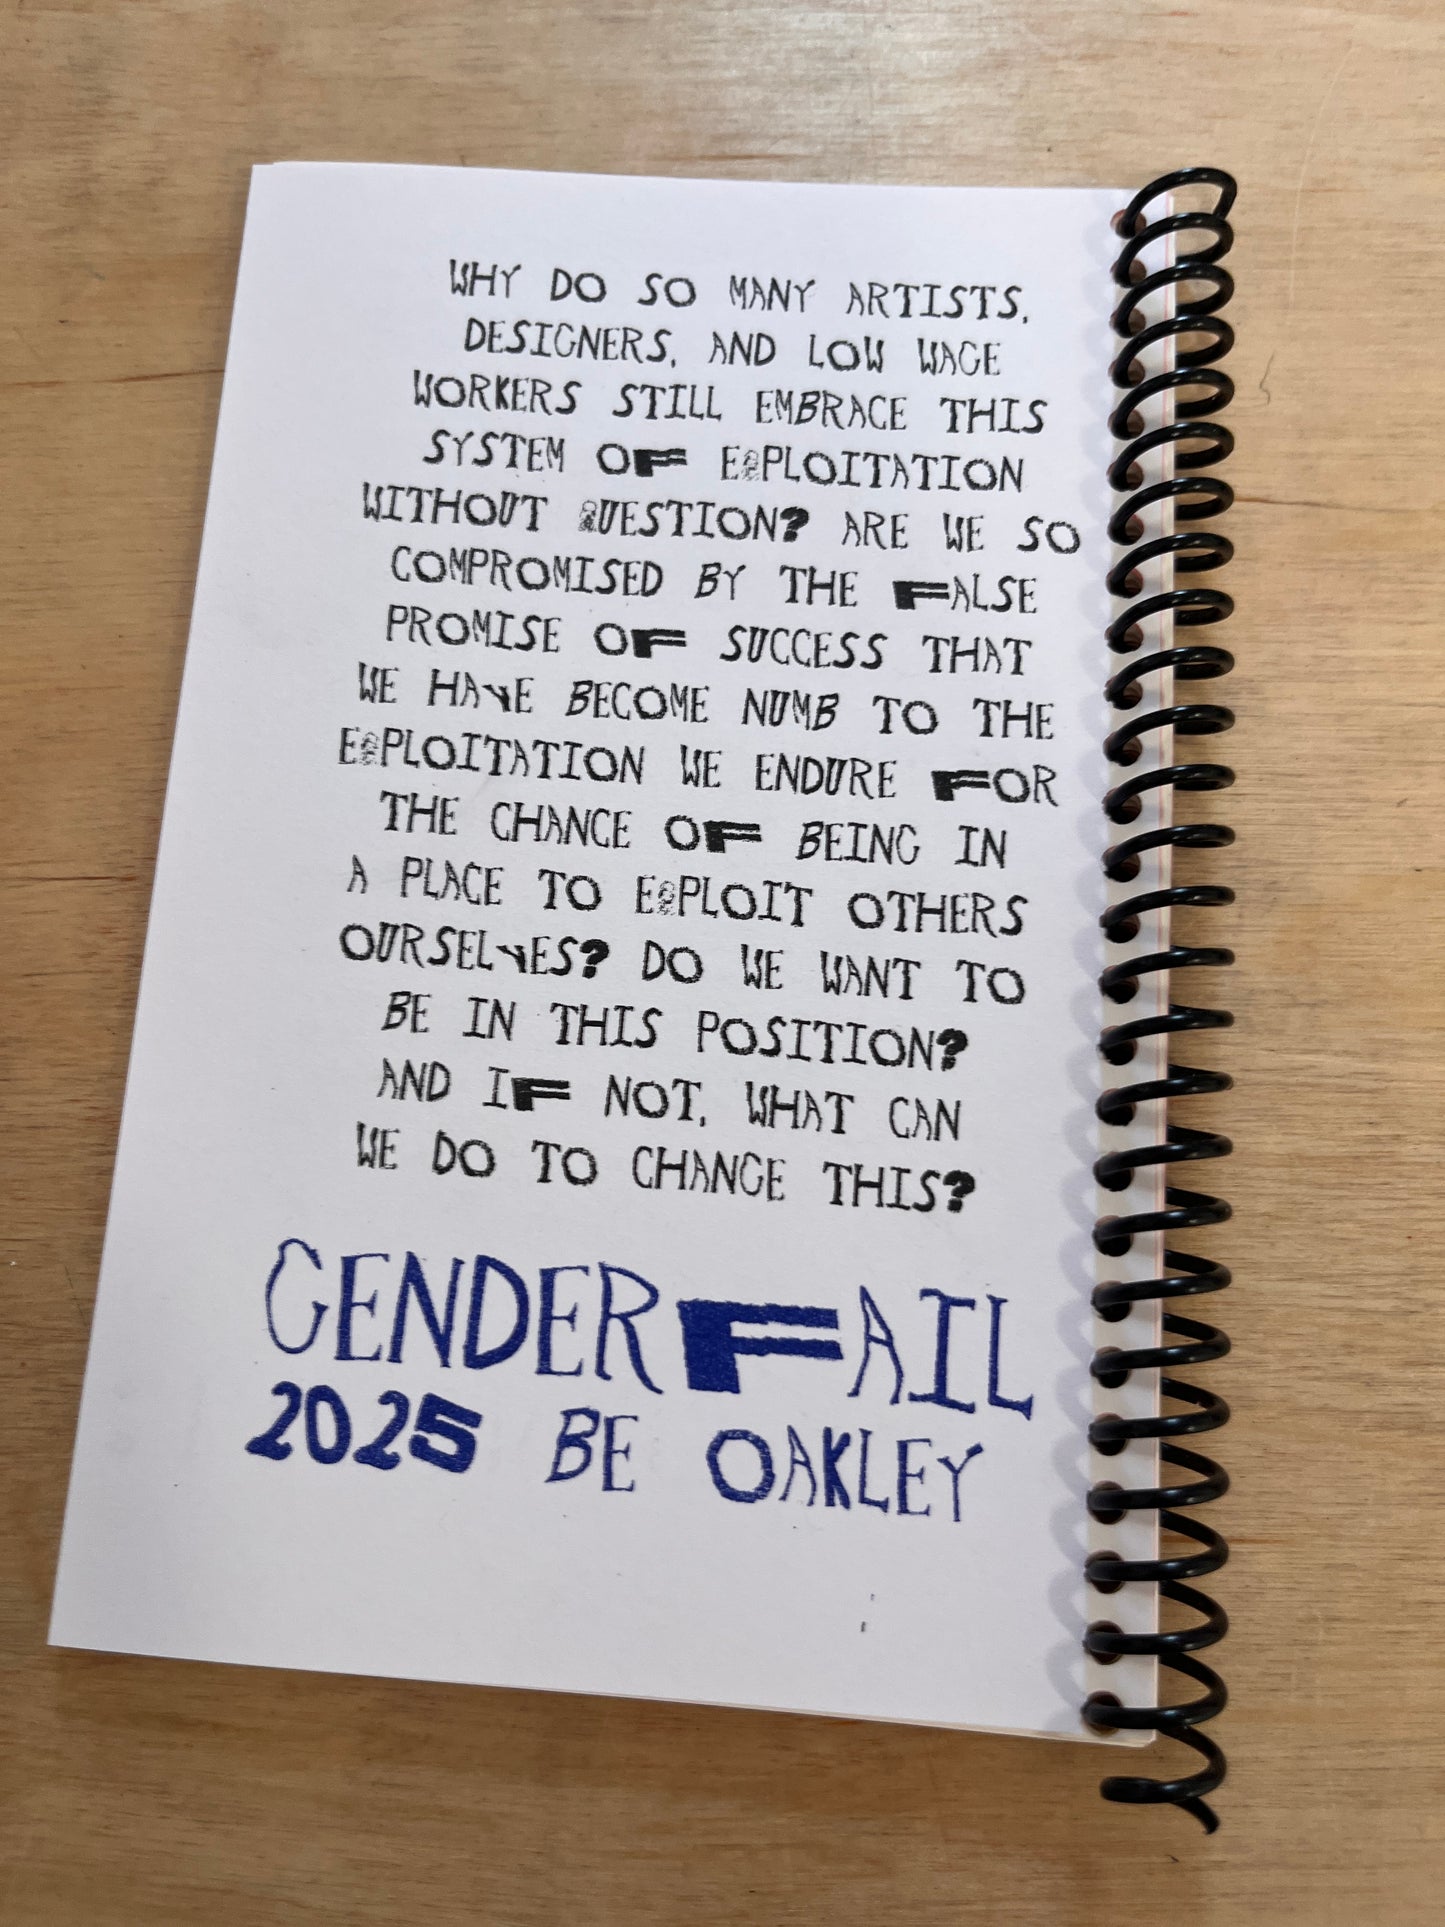 WHY DO SO MANY ARTISTS,
DESIGNERS, AND LOW WAGE
WORKERS STILL EMBRACE THIS
SYSTEM OF EXPLOITATION
WITHOUT QUESTION? ARE WE SO
COMPROMISED BY THE FALSE
PROMISE OF SUCCESS THAT
WE HAVE BECOME NUMB TO THE
EXPLOITATION WE ENDURE FOR
THE CHANCE OF BEING IN
A PLACE TO EXPLOIT OTHERS
OURSELVES? DO WE WANT TO
BE IN THIS POSITION?
AND IF NOT, WHAT CAN
WE DO TO CHANGE THIS?
GENDERFAIL
2025 BE OAKLEY